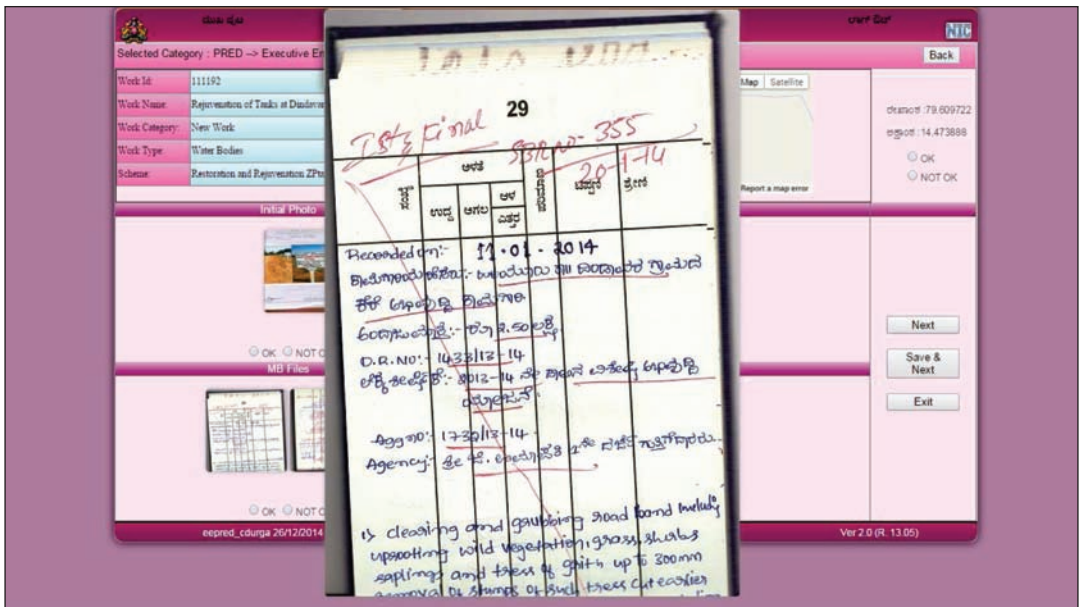 ಮುಖ ಪುಟ
ಲಾಗ್ ಔಟ್
NIC
Selected Category : PRED --> Executive En
Back
Work Id: 111192
Work Name: Rejuvenation of Tanks at Dindavar
Work Category: New Work
Work Type: Water Bodies
Scheme: Restoration and Rejuvenation ZPta
Map Satellite
Report a map error
ರೇಖಾಂಶ :79.609722
ಅಕ್ಷಾಂಶ :14.473888
OK
NOT OK
Initial Photo
OK NOT O
MB Files
OK NOT O
Next
Save &
Next
Exit
eepred_cdurga 26/12/2014
Ver 2.0 (R. 13.05)
29
Ist & Final
SBR NO- 355
20-1-14
ಸಂಖ್ಯೆ
ಅಳತೆ
ಉದ್ದ
ಅಗಲ
ಆಳ
ಎತ್ತರ
ಪರಿಮಾಣ
ಟಿಪ್ಪಣಿ
ಶ್ರೇಣಿ
Recorded on:- 11-01-2014
ಕಾಮಗಾರಿಯ ಹೆಸರು:- ಹಿರಿಯೂರು ತಾ|| ದಿಂಡಾವರ ಗ್ರಾಮದ
ಕೆರೆ ಅಭಿವೃದ್ಧಿ ಕಾಮಗಾರಿ
ಅಂದಾಜು ಮೊತ್ತ:- ರೂ 2.50 ಲಕ್ಷ
D.R.NO:- 1433/13-14
ಲೆಕ್ಕ ಶೀರ್ಷಿಕೆ:- 2013-14 ನೇ ಸಾಲಿನ ವಿಶೇಷ ಅಭಿವೃದ್ಧಿ
ಯೋಜನೆ
Agg no:- 1732/13-14
Agency:- ಶ್ರೀ ಉಮಾಪತಿ 2ನೇ ದರ್ಜೆ ಗುತ್ತಿಗೆದಾರರು
1) clearing and grubbing road land includig
uprooting wild vegetation, grass, shurbs
saplings and tress of grith up to 300mm
removal of stumps of such tress cut earlier